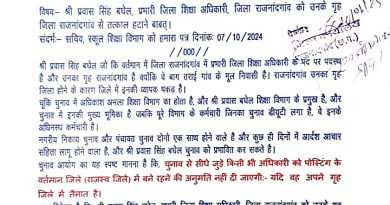 विषयः- श्री प्रवास सिंह बघेल, प्रभारी जिला शिक्षा अधिकारी, जिला राजनांदगांव को उनके गृह
जिला राजनांदगांव से तत्काल हटाने बाबत्।
संदर्भः- सचिव, स्कूल शिक्षा विभाग को हमारा पत्र दिनांकः 07/10/2024
//000//
श्री प्रवास सिंह बघेल जो कि वर्तमान में जिला राजनांदगांव में प्रभारी जिला शिक्षा अधिकारी के पद पर पदस्थ
है और उनका गृह जिला राजनांदगांव है क्योंकि वे बाग तराई गांव के मूल निवासी है। राजनांदगांव उनका गृह
जिला होने के कारण जिले में इनकी व्यापक पकड़ है।
चुंकि चुनाव में अधिकांश अमला शिक्षा विभाग का होता है, और श्री प्रवास सिंह बघेल शिक्षा विभाग के प्रमुख है, और
चुनाव में इनकी मुख्य भूमिका है जबकि पूरे विभाग के कर्मचारी जिनका चुनाव डीयूटी लगा है, वे इनके
अधिनस्थ कर्मचारी है।
नगरीय निकाय चुनाव और पंचायत चुनाव दोनो एक साथ होने वाले है और कुछ ही दिनों में आदर्श आचार
संहिता लागू होने वाला है, और श्री प्रवास सिंह बघेल चुनाव को प्रभावित कर सकते है।
चुनाव आयोग का यह स्पष्ट मानना है कि, चुनाव से सीधे जुड़े किसी भी अधिकारी को पोस्टिंग के
वर्तमान जिले (राजस्व जिले) में बने रहने की अनुमति नहीं दी जाएगी:- यदि वह अपने गृह
जिले में तैनात है।